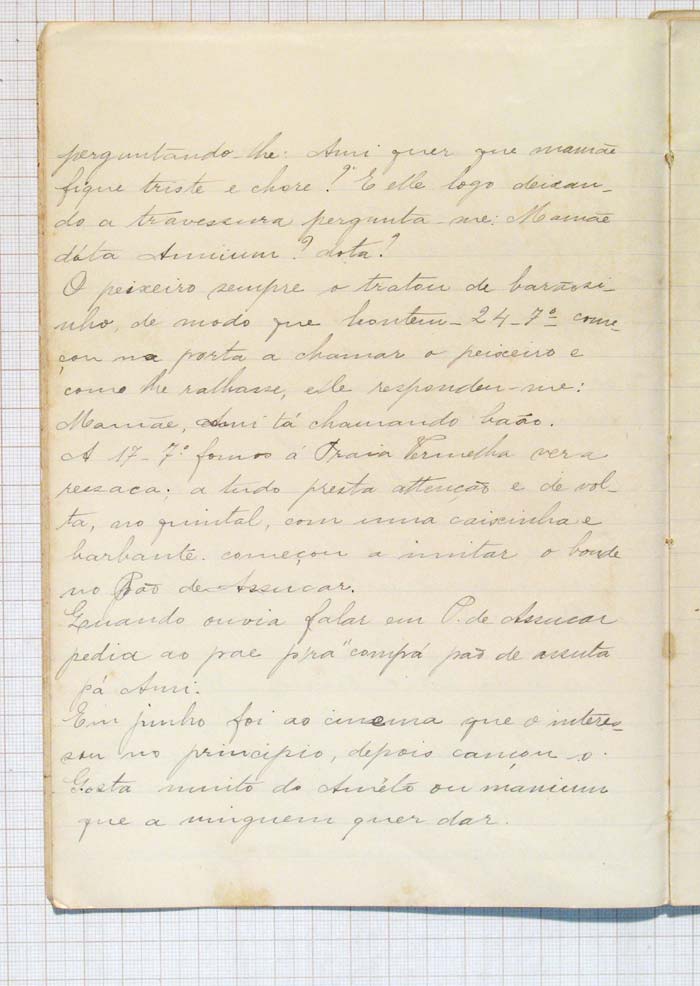 perguntando-lhe: Ami quer que mamãe
fique triste e chore?" E elle logo deixan-
do a travessura pergunta-me: Mamãe
dóta Amium? dota?
O peixeiro sempre o tratou de barãosi-
nho, de modo que hontem - 24-7º come-
çou na porta a chamar o peixeiro e
como lhe ralhasse, elle respondeu-me:
Mamãe, Ami tá chamando baão.
A 17-7º fomos á Praia Vermelha ver a
ressaca; a tudo presta attenção e de vol-
ta, no quintal, com uma caixinha e
barbante começou a imitar o bonde
no Pão de Assucar.
Quando ouvia falar em P. de Assucar
pedia ao pae p/ra "compá pão de assuta
pá Ami.
Em junho foi ao cinema que o interes-
sou no principio, depois cançou-o.
Gosta muito do ou
que a ninguem quer dar.